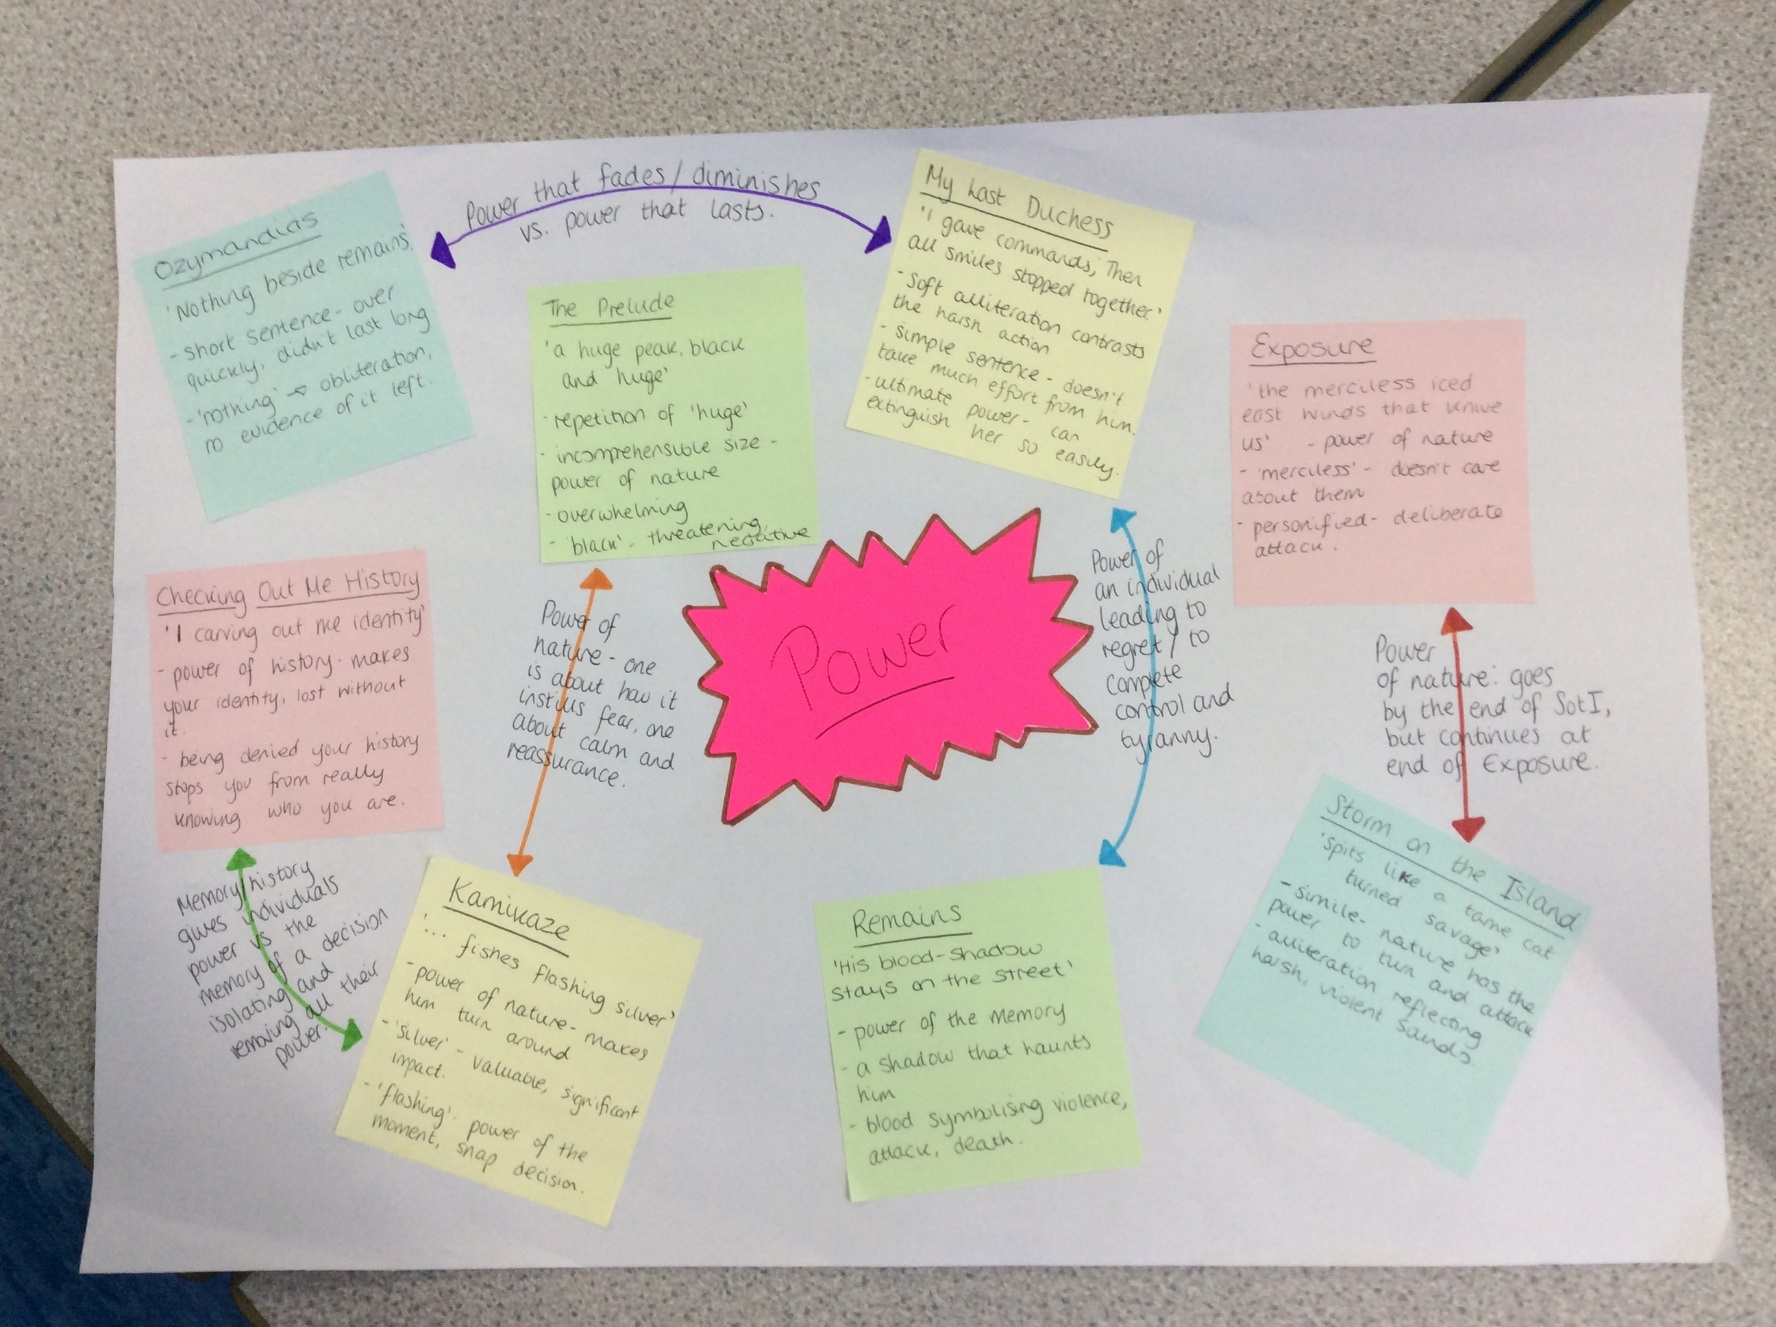 Ozymandias
'Nothing beside remains'.
- short sentence - over
quickly, didn't last long
- 'nothing' → obliteration,
no evidence of it left.
Power that fades / diminishes
vs. power that lasts.
The Prelude
'a huge peak, black
and huge'
- repetition of 'huge'
- incomprehensible size -
power of nature
- overwhelming
- 'black' - threatening,
negative
My Last Duchess
'I gave commands; Then
all smiles stopped together'
- Soft alliteration contrasts
the harsh action
- simple sentence - doesn't
take much effort from him.
- ultimate power - can
extinguish her so easily.
Exposure
'the merciless iced
east winds that knive
us' - power of nature
- 'merciless' - doesn't care
about them
- personified - deliberate
attack.
Checking Out Me History
'I carving out me identity'
- power of history - makes
your identity, lost without
it.
- being denied your history
stops you from really
knowing who you are.
Power of
nature - one
is about how it
instills fear, one
about calm and
reassurance.
Power
Power of
an individual
leading to
regret / to
complete
control and
tyranny.
Power
of nature: goes
by the end of SotI,
but continues at
end of Exposure.
Memory/history
gives individuals
power vs the
memory of a decision
isolating and
removing all their
power.
Kamikaze
'... fishes flashing silver'
- power of nature - makes
him turn around
- 'silver' - valuable, significant
impact.
- 'flashing' - power of the
moment, snap decision.
Remains
'His blood-shadow
stays on the street'
- power of the memory
- a shadow that haunts
him
- blood symbolising violence,
attack, death.
Storm on the Island
'spits like a tame cat
turned savage'
- simile - nature has the
power to turn and attack
- alliteration reflecting
harsh, violent sounds.